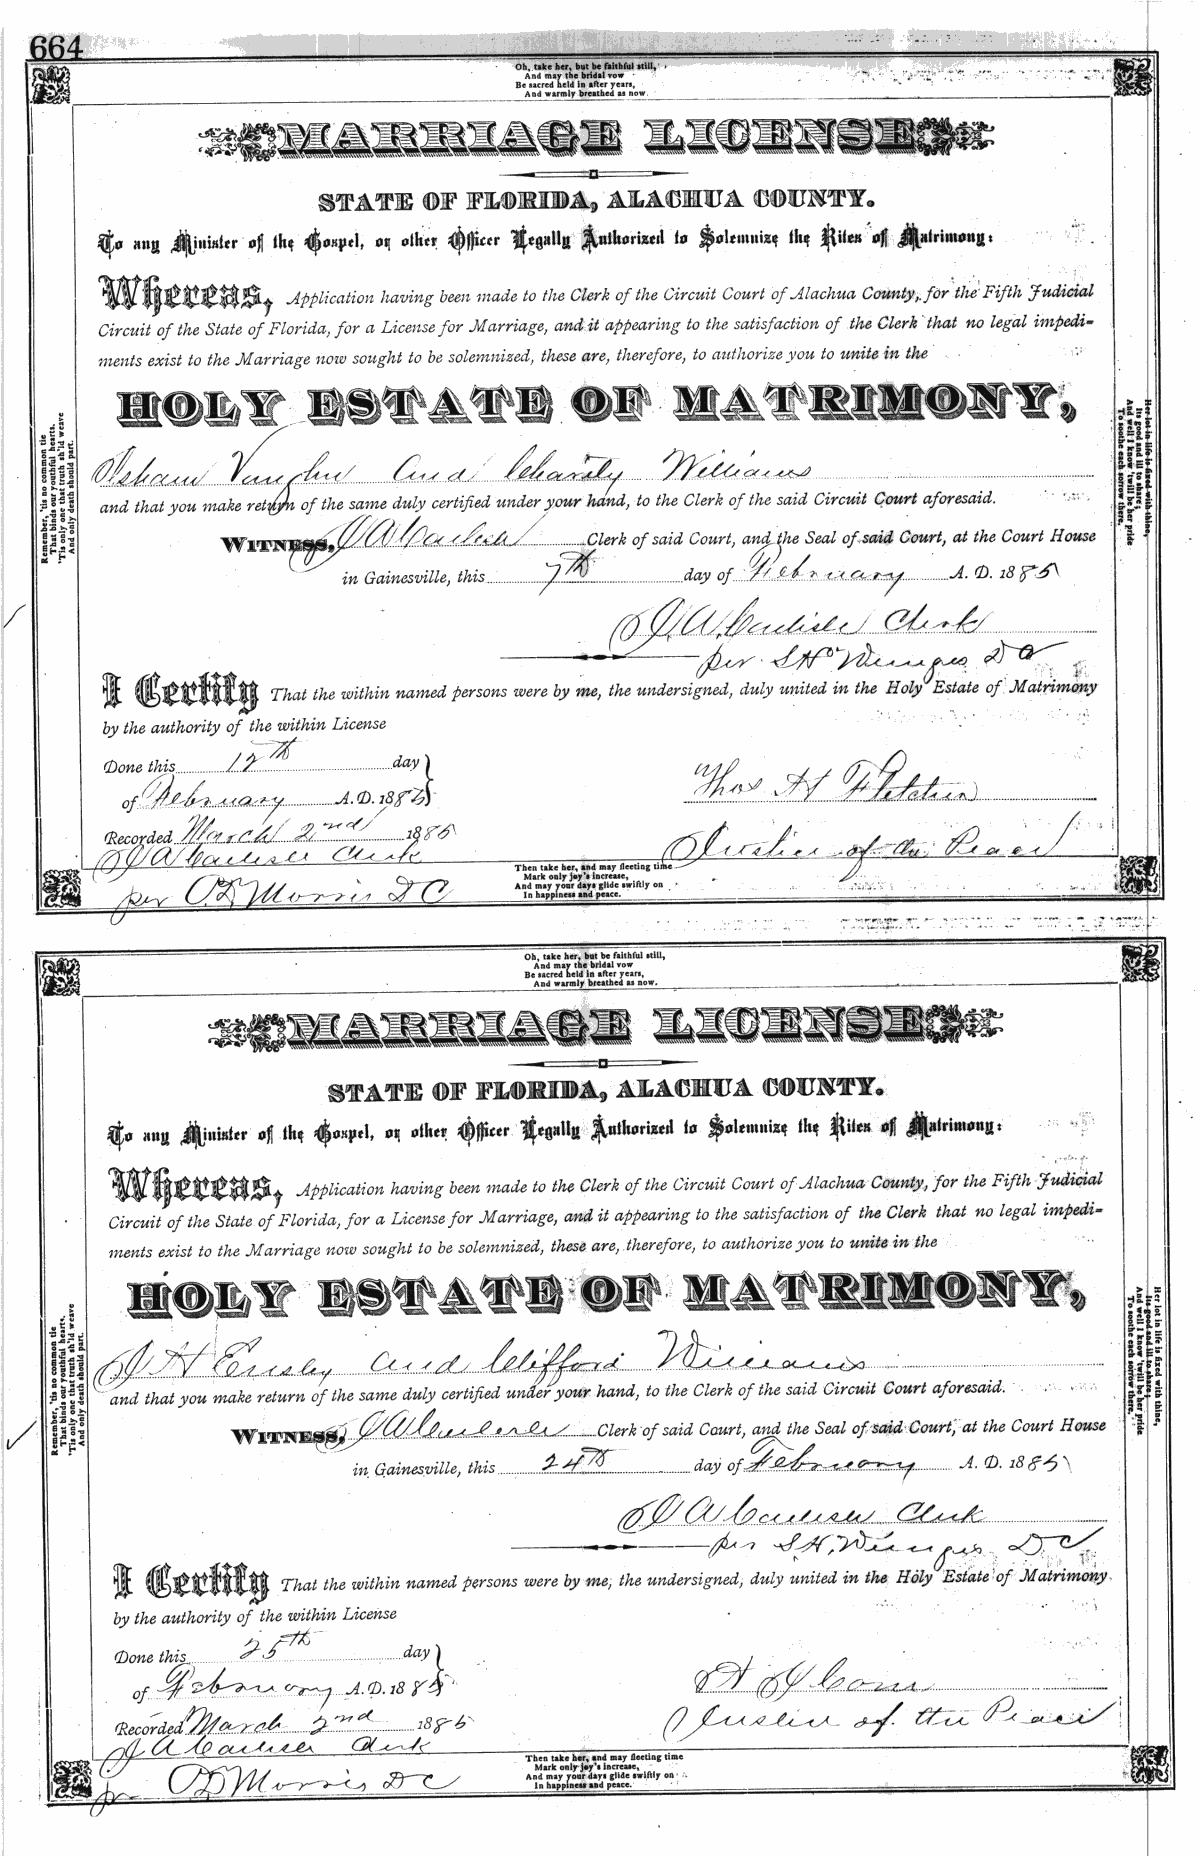 664
Oh, take her, but be faithful still,
And may the bridal vow
Be sacred held in after years,
And warmly breathed as now.
MARRIAGE LICENSE
STATE OF FLORIDA, ALACHUA COUNTY.
To any Minister of the Gospel, or other Officer Legally Authorized to Solemnize the Rites of Matrimony:
Whereas, Application having been made to the Clerk of the Circuit Court of Alachua County, for the Fifth Judicial
Circuit of the State of Florida, for a License for Marriage, and it appearing to the satisfaction of the Clerk that no legal impedi-
ments exist to the Marriage now sought to be solemnized, these are, therefore, to authorize you to unite in the
HOLY ESTATE OF MATRIMONY,
Isham Vaughn and Charity Williams
and that you make return of the same duly certified under your hand, to the Clerk of the said Circuit Court aforesaid.
WITNESS, J A Carlisle Clerk of said Court, and the Seal of said Court, at the Court House
in Gainesville, this 7th day of February A. D. 1885
J. A. Carlisle Clerk
per S H Wienges D C
I Certify That the within named persons were by me, the undersigned, duly united in the Holy Estate of Matrimony
by the authority of the within License
Done this 12th day
of February A. D. 1885
Thos H Fletcher
Recorded March 2nd 1885
Justice of the Peace
J A Carlisle Clerk
per O. D Morris D C
Then take her, and may fleeting time
Mark only joy's increase,
And may your days glide swiftly on
In happiness and peace.
Remember, 'tis no common tie
That binds our youthful hearts.
'Tis only one that truth sh'ld weave
And only death should part.
Her lot in life is fixed with thine,
Its good and ill to share;
And well I know 'twill be her pride
To soothe each sorrow there.
Oh, take her, but be faithful still,
And may the bridal vow
Be sacred held in after years,
And warmly breathed as now.
MARRIAGE LICENSE
STATE OF FLORIDA, ALACHUA COUNTY.
To any Minister of the Gospel, or other Officer Legally Authorized to Solemnize the Rites of Matrimony:
Whereas, Application having been made to the Clerk of the Circuit Court of Alachua County, for the Fifth Judicial
Circuit of the State of Florida, for a License for Marriage, and it appearing to the satisfaction of the Clerk that no legal impedi-
ments exist to the Marriage now sought to be solemnized, these are, therefore, to authorize you to unite in the
HOLY ESTATE OF MATRIMONY,
J H Ensley and Clifford Williams
and that you make return of the same duly certified under your hand, to the Clerk of the said Circuit Court aforesaid.
WITNESS, J A Carlisle Clerk of said Court, and the Seal of said Court, at the Court House
in Gainesville, this 24th day of February A. D. 1885
J A Carlisle Clerk
per S. H. Wienges D. C
I Certify That the within named persons were by me, the undersigned, duly united in the Holy Estate of Matrimony
by the authority of the within License
Done this 25th day
of February A. D. 1885
Recorded March 2nd 1885
Justice of the Peace
J A Carlisle Clerk
per O D Morris D C
Then take her, and may fleeting time
Mark only joy's increase,
And may your days glide swiftly on
In happiness and peace.
Remember, 'tis no common tie
That binds our youthful hearts.
'Tis only one that truth sh'ld weave
And only death should part.
Her lot in life is fixed with thine,
Its good and ill to share;
And well I know 'twill be her pride
To soothe each sorrow there.